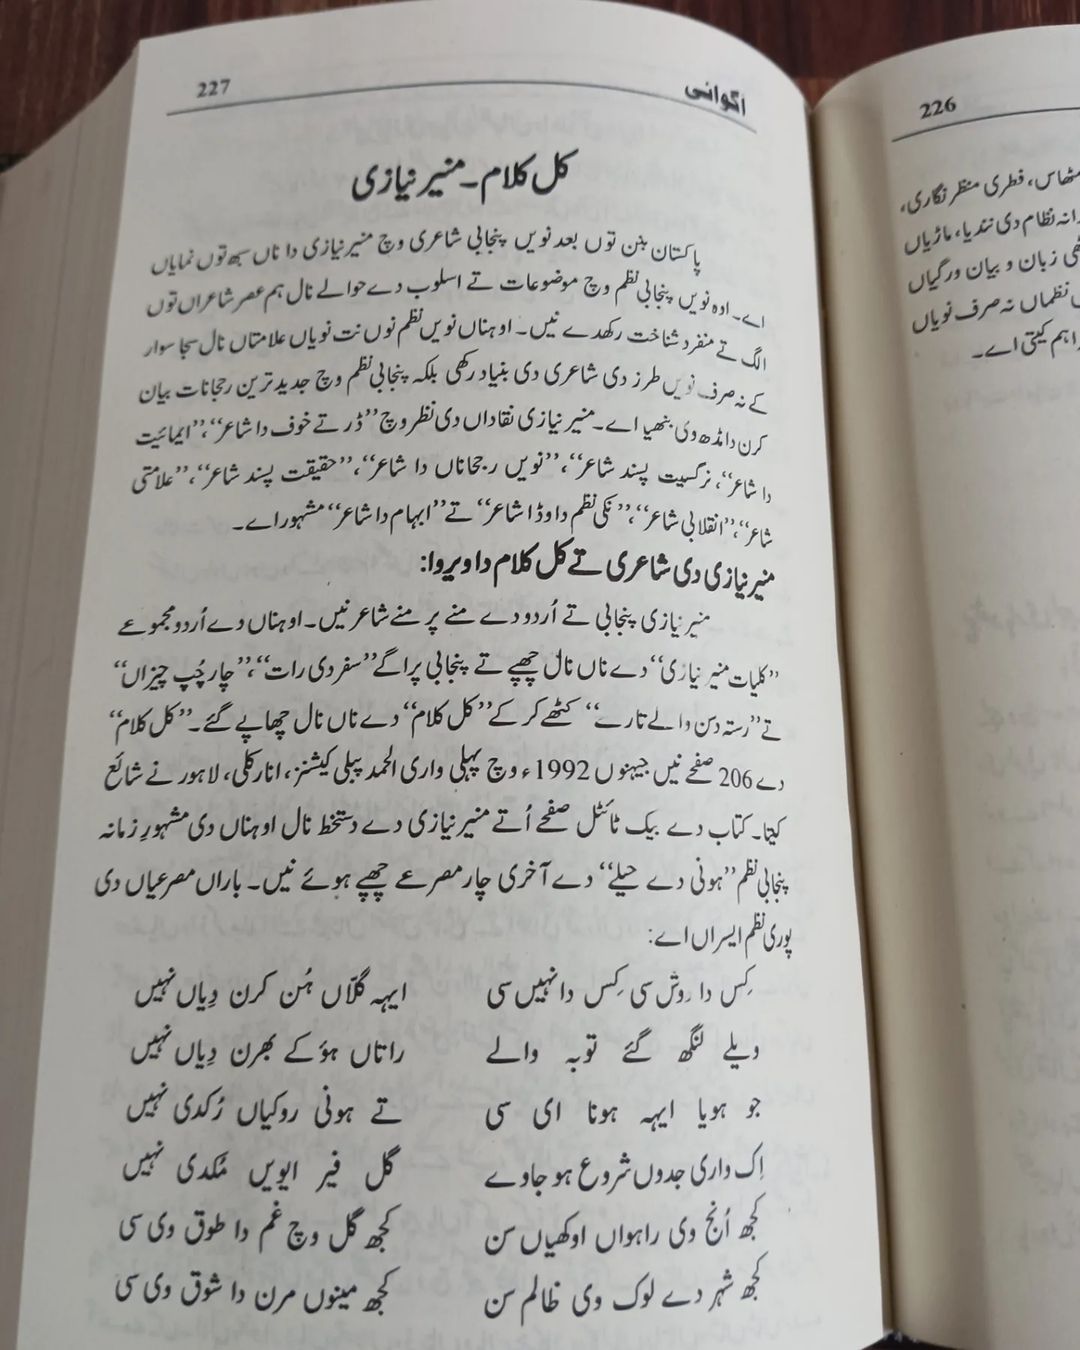 227
اگوانی
کل کلام۔ منیر نیازی
پاکستان بنن توں بعد نویں پنجابی شاعری وچ منیر نیازی دا ناں سبھ توں نمایاں
اے۔ اوہ نویں پنجابی نظم وچ موضوعات تے اسلوب دے حوالے نال ہم عصر شاعراں توں
الگ تے منفرد شناخت رکھدے نیں۔ اوہناں نویں نظم نوں نت نویاں علامتاں نال سجا سوار
کے نہ صرف نویں طرز دی شاعری دی بنیاد رکھی بلکہ پنجابی نظم وچ جدید ترین رجحانات بیان
کرن دا مڈھ وی بنھیا اے۔ منیر نیازی نقاداں دی نظر وچ ”ڈر تے خوف دا شاعر“، ”ایمائیت
دا شاعر“، نرگسیت پسند شاعر“، ”نویں رجحاناں دا شاعر“، ”حقیقت پسند شاعر“، ”علامتی
شاعر“، ”انقلابی شاعر“، ”نکی نظم دا وڈا شاعر“ تے ”ابہام دا شاعر“ مشہور اے۔
منیر نیازی دی شاعری تے کل کلام دا ویروا:
منیر نیازی پنجابی تے اُردو دے منے پر منے شاعر نیں۔ اوہناں دے اُردو مجموعے
”کلیات منیر نیازی“ دے ناں نال چھپے تے پنجابی پراگے ”سفر دی رات“، ”چار چُپ چیزاں“
تے ”رستہ دسن والے تارے“ کٹھے کر کے ”کل کلام“ دے ناں نال چھاپے گئے۔ ”کل کلام“
دے 206 صفحے نیں جیہنوں 1992ء وچ پہلی واری الحمد پبلی کیشنز، انارکلی، لاہور نے شائع
کیتا۔ کتاب دے بیک ٹائٹل صفحے اُتے منیر نیازی دے دستخط نال اوہناں دی مشہورِ زمانہ
پنجابی نظم ”ہونی دے حیلے“ دے آخری چار مصرعے چھپے ہوئے نیں۔ باراں مصرعیاں دی
پوری نظم ایسراں اے:
کِس دا دوش سی کِس دا نہیں سی ایہہ گلّاں ہُن کرن دِیاں نہیں
ویلے لنگھ گئے توبہ والے راتاں ہؤکے بھرن دِیاں نہیں
جو ہویا ایہہ ہونا ای سی تے ہونی روکیاں رُکدی نہیں
اِک واری جدوں شروع ہو جاوے گل فیر ایویں مُکدی نہیں
کجھ اُنج وی راہواں اوکھیاں سن کجھ گل وچ غم دا طوق وی سی
کجھ شہر دے لوک وی ظالم سن کجھ مینوں مرن دا شوق وی سی
226
مٹھاس، فطری منظر نگاری،
نظام دی نندیا، ماڑیاں
زبان و بیان ورگیاں
نظماں نہ صرف نویاں
کیتی اے۔